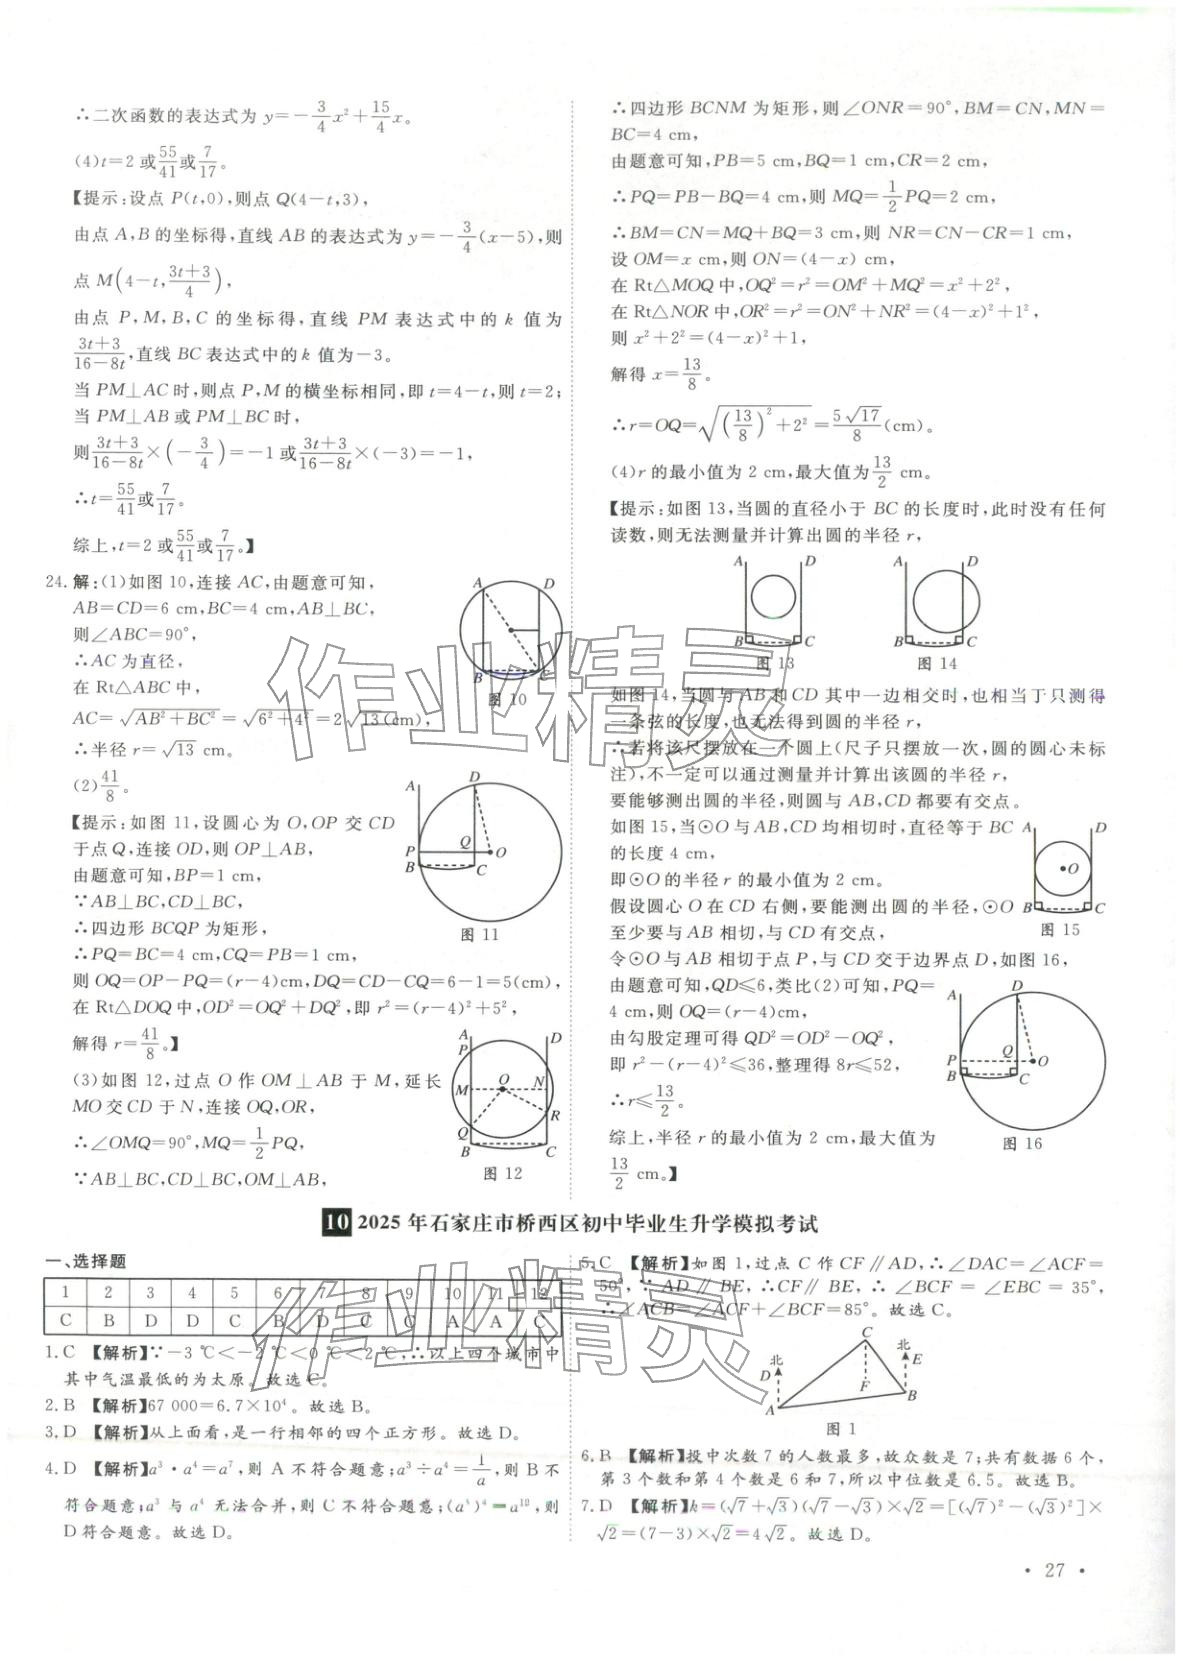 ∴二次函数的表达式为 y=-3/4x²+15/4x。
(4)t=2 或55/41或7/17。
【提示:设点 P(t,0),则点 Q(4-t,3),
由点 A,B 的坐标得,直线 AB 的表达式为 y=-3/4(x-5),则
点 M(4-t,(3t+3)/4),
由点 P,M,B,C 的坐标得,直线 PM 表达式中的 k 值为
(3t+3)/(16-8t),直线 BC 表达式中的 k 值为-3。
当 PM⊥AC 时,则点 P,M 的横坐标相同,即 t=4-t,则 t=2;
当 PM⊥AB 或 PM⊥BC 时,
则(3t+3)/(16-8t)×(-3/4)=-1 或(3t+3)/(16-8t)×(-3)=-1,
∴t=55/41或7/17。
综上,t=2 或55/41或7/17。】
24.解:(1)如图 10,连接 AC,由题意可知,
AB=CD=6 cm,BC=4 cm,AB⊥BC,
则∠ABC=90°,
∴AC 为直径,
在 Rt△ABC 中,
AC=√(AB²+BC²)=√(6²+4²)=2√13(cm),
∴半径 r=√13 cm。
A D B C
图 10
(2)41/8。
【提示:如图 11,设圆心为 O,OP 交 CD
于点 Q,连接 OD,则 OP⊥AB,
由题意可知,BP=1 cm,
∵AB⊥BC,CD⊥BC,
∴四边形 BCQP 为矩形,
∴PQ=BC=4 cm,CQ=PB=1 cm,
则 OQ=OP-PQ=(r-4)cm,DQ=CD-CQ=6-1=5(cm),
在 Rt△DOQ 中,OD²=OQ²+DQ²,即 r²=(r-4)²+5²,
解得 r=41/8。】
A D P Q O B C
图 11
(3)如图 12,过点 O 作 OM⊥AB 于 M,延长
MO 交 CD 于 N,连接 OQ,OR,
∴∠OMQ=90°,MQ=1/2PQ,
∵AB⊥BC,CD⊥BC,OM⊥AB,
A D P M O N R Q B C
图 12
∴四边形 BCNM 为矩形,则∠ONR=90°,BM=CN,MN=
BC=4 cm,
由题意可知,PB=5 cm,BQ=1 cm,CR=2 cm,
∴PQ=PB-BQ=4 cm,则 MQ=1/2PQ=2 cm,
∴BM=CN=MQ+BQ=3 cm,则 NR=CN-CR=1 cm,
设 OM=x cm,则 ON=(4-x) cm,
在 Rt△MOQ 中,OQ²=r²=OM²+MQ²=x²+2²,
在 Rt△NOR 中,OR²=r²=ON²+NR²=(4-x)²+1²,
则 x²+2²=(4-x)²+1,
解得 x=13/8。
∴r=OQ=√((13/8)²+2²)=5√17/8(cm)。
(4)r 的最小值为 2 cm,最大值为13/2 cm。
【提示:如图 13,当圆的直径小于 BC 的长度时,此时没有任何
读数,则无法测量并计算出圆的半径 r,
A D B C
图 13
A D B C
图 14
如图 14,当圆与 AB 和 CD 其中一边相交时,也相当于只测得
一条弦的长度,也无法得到圆的半径 r,
∴若将该尺摆放在一个圆上(尺子只摆放一次,圆的圆心未标
注),不一定可以通过测量并计算出该圆的半径 r,
要能够测出圆的半径,则圆与 AB,CD 都要有交点。
如图 15,当⊙O 与 AB,CD 均相切时,直径等于 BC
的长度 4 cm,
即⊙O 的半径 r 的最小值为 2 cm。
假设圆心 O 在 CD 右侧,要能测出圆的半径,⊙O
至少要与 AB 相切,与 CD 有交点,
A D O B C
图 15
令⊙O 与 AB 相切于点 P,与 CD 交于边界点 D,如图 16,
由题意可知,QD≤6,类比(2)可知,PQ=
4 cm,则 OQ=(r-4)cm,
由勾股定理可得 QD²=OD²-OQ²,
即 r²-(r-4)²≤36,整理得 8r≤52,
∴r≤13/2。
综上,半径 r 的最小值为 2 cm,最大值为
13/2 cm。】
A D P Q O B C
图 16
10 2025 年石家庄市桥西区初中毕业生升学模拟考试
一、选择题
1 2 3 4 5 6 7 8 9 10 11 12
C B D D C B D C C A A C
1.C 【解析】∵-3 ℃<-2 ℃<0 ℃<2 ℃,∴以上四个城市中
其中气温最低的为太原。故选 C。
2.B 【解析】67 000=6.7×10⁴。故选 B。
3.D 【解析】从上面看,是一行相邻的四个正方形。故选 D。
4.D 【解析】a³·a⁴=a⁷,则 A 不符合题意;a³÷a⁴=1/a,则 B 不
符合题意;a³ 与 a⁴ 无法合并,则 C 不符合题意;(a³)⁴=a¹²,则
D 符合题意。故选 D。
5.C 【解析】如图 1,过点 C 作 CF∥AD,∴∠DAC=∠ACF=
50°,∵AD∥BE,∴CF∥BE,∴∠BCF=∠EBC=35°,
∴∠ACB=∠ACF+∠BCF=85°。故选 C。
北 D A C F 北 E B
图 1
6.B 【解析】投中次数 7 的人数最多,故众数是 7;共有数据 6 个,
第 3 个数和第 4 个数是 6 和 7,所以中位数是 6.5。故选 B。
7.D 【解析】k=(√7+√3)(√7-√3)×√2=[(√7)²-(√3)²]×
√2=(7-3)×√2=4√2。故选 D。
• 27 •
作业精灵
作业精灵